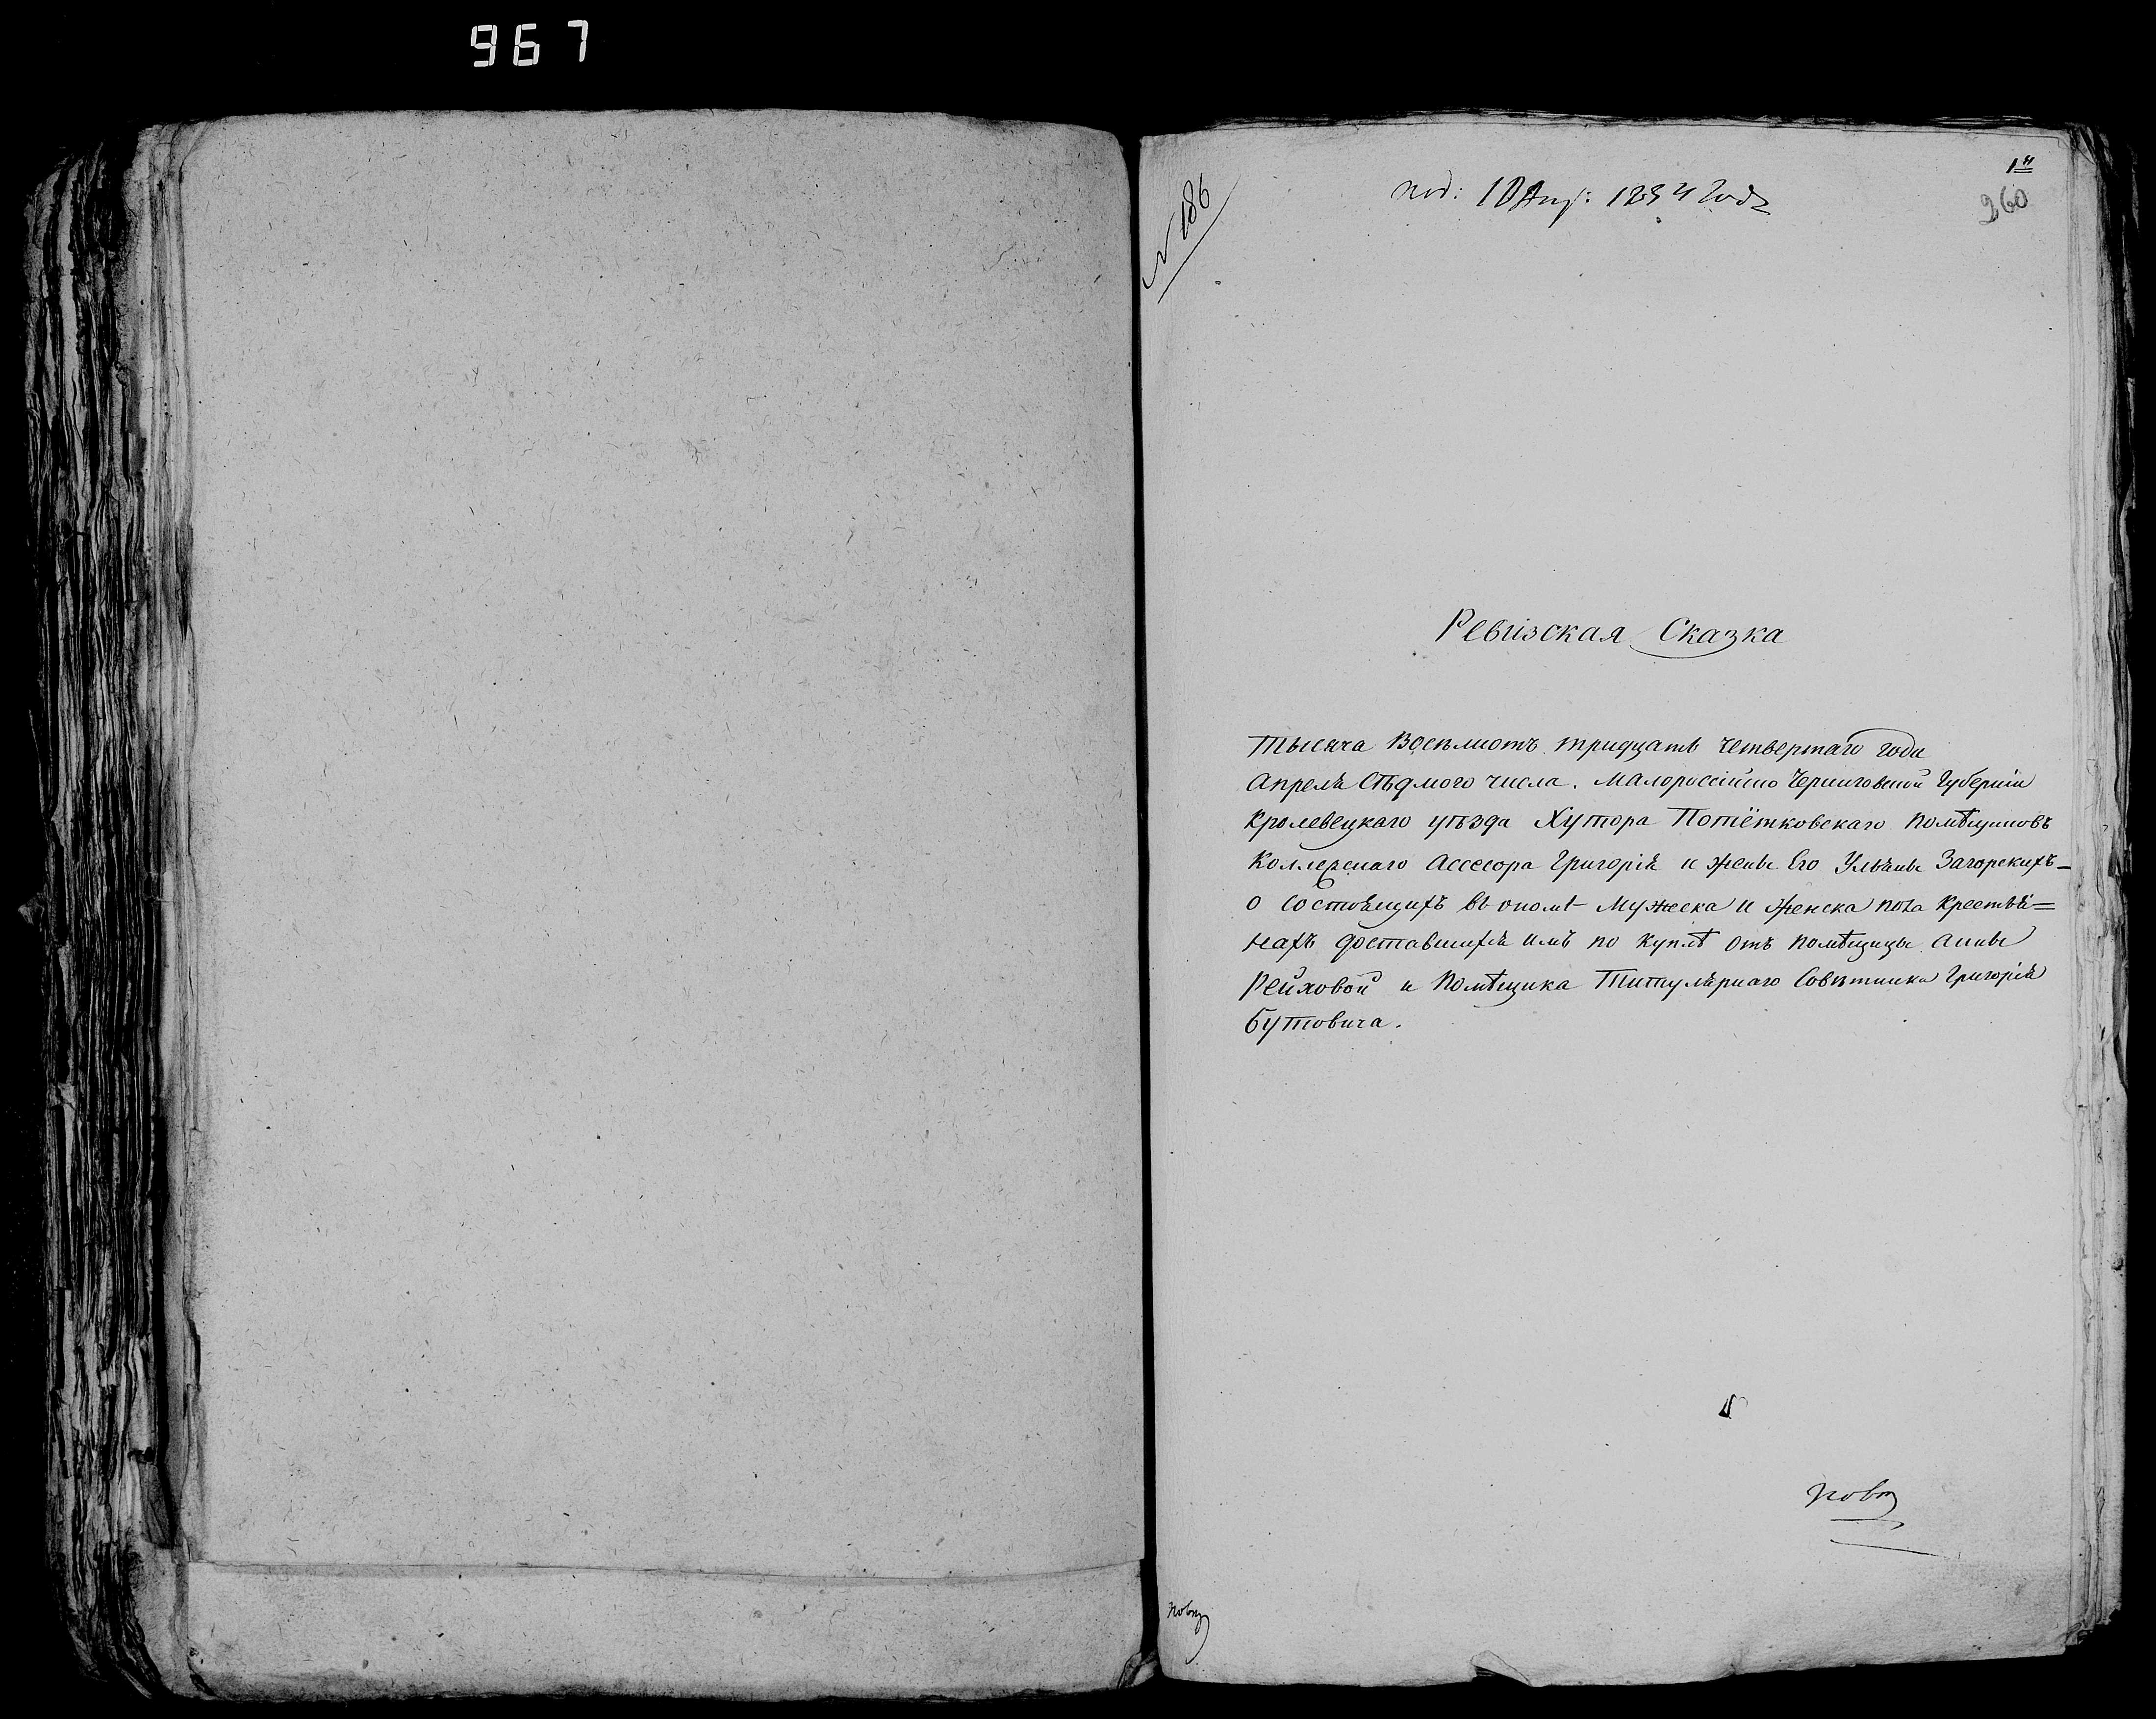 967
№ 186
под: 10 Апр: 1834 года
1й
260
Ревизская Сказка
Тысяча Восемсотъ тридцать четвертаго года
Апреля Сѣдмого числа. Малороссійско Черниговской Губерніи
Кролевецкаго уѣзда Хутора Потётковскаго помѣщиковъ
Коллежскаго Ассесора Григорія и жены Его Ульяны Загорскихъ
о состоящихъ въ ономъ Мужеска и Женска пола Крестья=
нахъ доставшихся имъ по куплѣ отъ помѣщицы Анны
Рейховой и Помѣщика Титулярнаго Совѣтника Григорія
Бутовича.